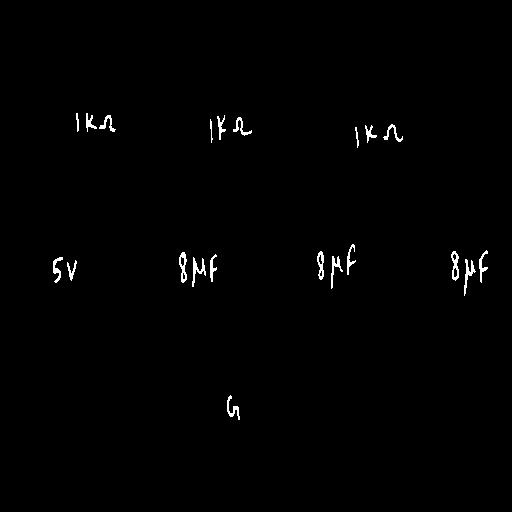 1KΩ 1KΩ 1KΩ
5V 8μF 8μF 8μF
G